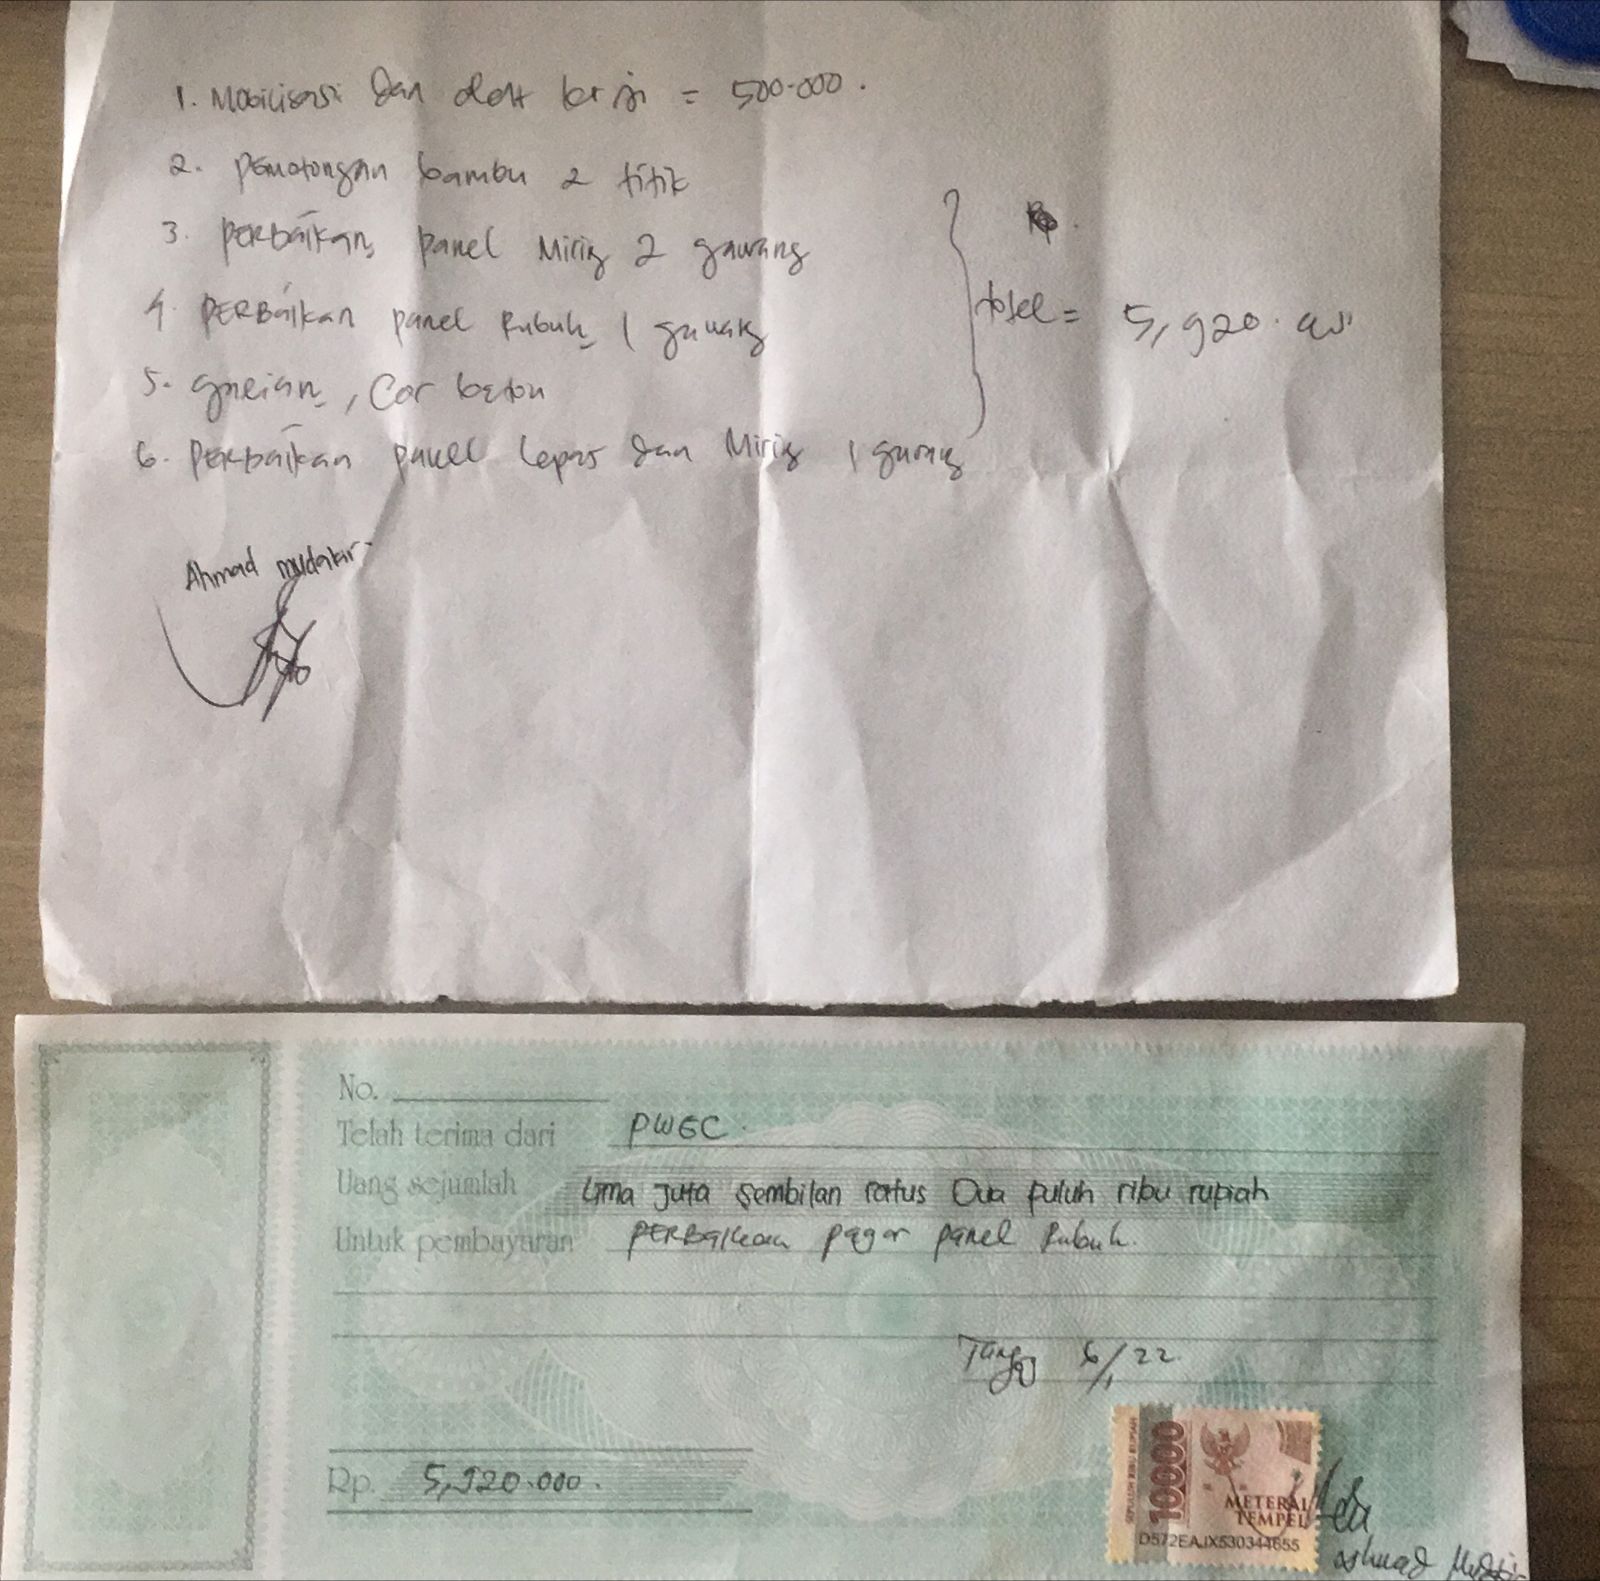 1. Mobilisasi dan alat kerja = 500.000.
2. Pemotongan bambu 2 titik
3. PERBAIKAN panel Miring 2 gawang
4. PERBAIKAN panel Rubuh 1 gawang
5. galian, Cor beton
6. PERBAIKAN panel lepas dan Miring 1 gawang
total = 5,920.
Ahmad mudakir
No.
Telah terima dari PWGC.
Uang sejumlah Lima Juta Sembilan ratus Dua puluh ribu rupiah
Untuk pembayaran PERBAIKAN pagar panel Rubuh.
6/1 22
Rp. 5,920.000.
SEPULUH RIBU RUPIAH
10000
METERAI
TEMPEL
D572EAJX530344655